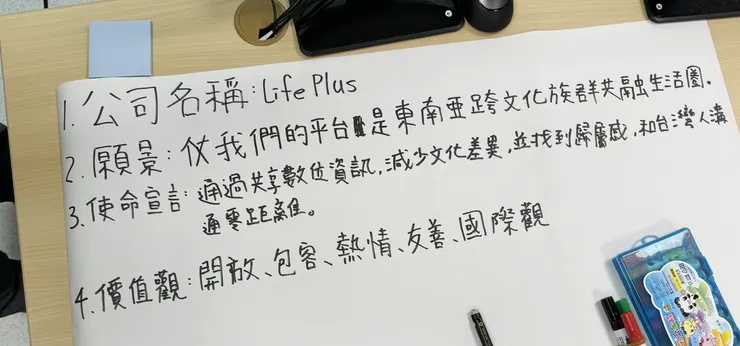 1. 公司名稱: Life Plus
2. 願景: 使我們的平台是東南亞跨文化族群共融生活圈。
3. 使命宣言: 通過共享數位資訊, 減少文化差異, 並找到歸屬感, 和台灣人溝
通零距離。
4. 價值觀: 開放、包容、熱情、友善、國際觀